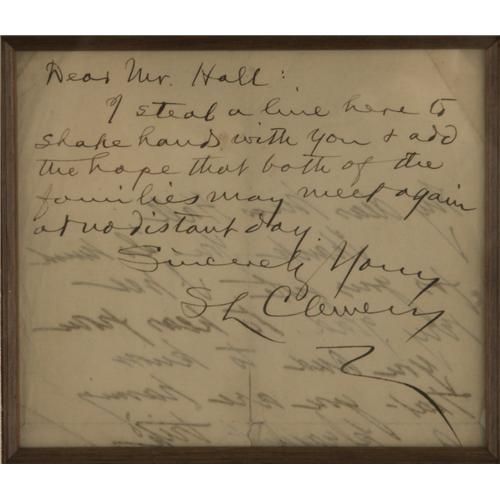 Dear Mr. Hall:
I steal a line here to
shake hands with you & add
the hope that both of the
families may meet again
at no distant day.
Sincerely Yours
S L Clemens